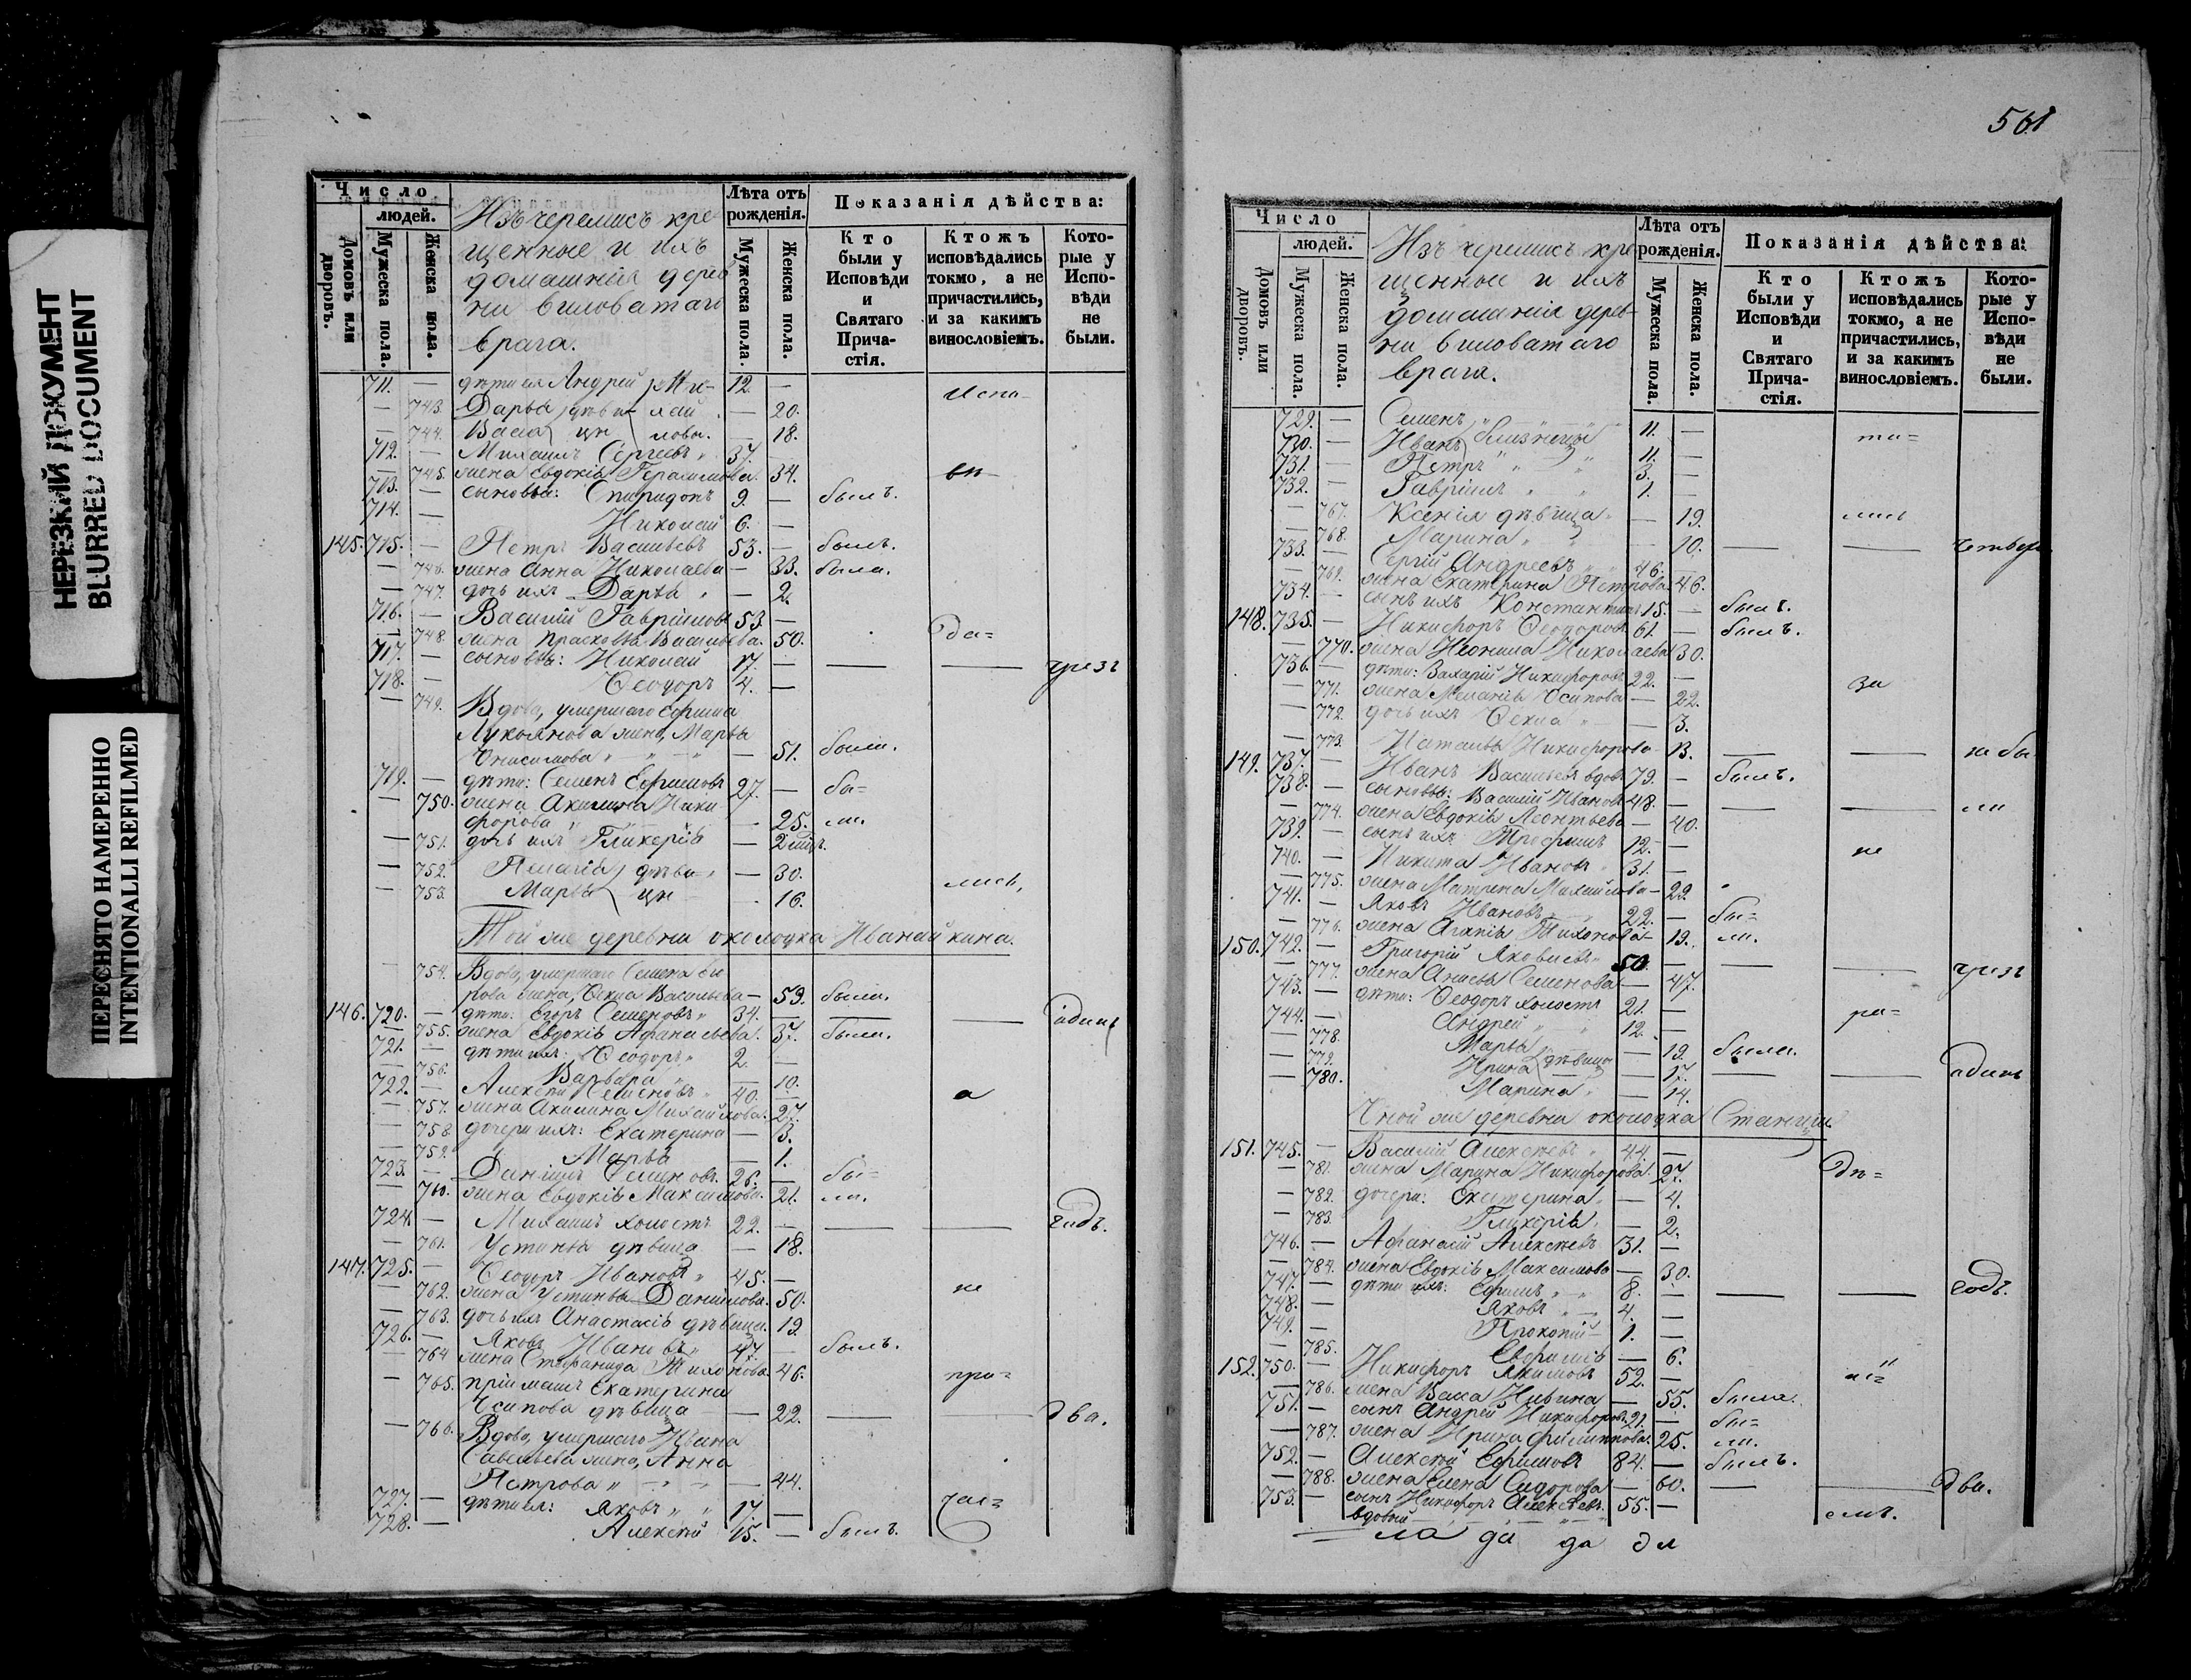 НЕРЕЗКИЙ ДОКУМЕНТ
BLURRED DOCUMENT
ПЕРЕСНЯТО НАМЕРЕННО
INTENTIONALLI REFILMED
Число
людей.
Домовъ или дворовъ.
Мужеска пола.
Женска пола.
Изъ черемисъ кре-
щенные и ихъ
домашнія дерев
ни Виловатаго
врага.
Лѣта отъ рожденія.
Мужеска пола.
Женска пола.
Показанія дѣйства:
Кто были у Исповѣди и Святаго Прича-стія.
Ктожъ исповѣдались токмо, а не причастились, и за какимъ винословіемъ.
Кото-рые у Испо-вѣди не были.
711. — дѣти ея Андрей Ми- 12 —
— 743. Дарья дѣви- хай — 20. Испо-
— 744. Васса цы ловы. — 18.
712. — Михаилъ Сергеевъ 37. —
— 745. жена Евдокія Герасимова. 34. вѣ-
713. — сыновья: Спиридонъ 9 — былъ.
714. — Николай 6. —
145. 715. — Петръ Васильевъ 53. — былъ.
— 746. жена Анна Николаева — 33. была.
— 747. дочь ихъ Дарья — 2.
716. — Василий Гавриловъ 53 —
— 748. жена Прасковья Васильева. 50. да=
717. — сыновья: Николай 17. — — — чрезъ
718. — Ѳеодоръ 4. —
— 749. Вдова, умершаго Ефима
Лукоянова жена, Марѳа
Онисимова — 51. была.
719. — дѣти: Семенъ Ефимовъ 27. — бы=
— 750. жена Акилина Ники
форова — 25. ли.
— 751. дочь ихъ Гликерія — 2
— 752. Пелагія дѣви= — 30.
— 753. Марѳа цы — 16. лись,
Той же деревни околодка Иванайкина.
— 754. Вдова, умершаго Семена
рова жена, Ѳекла Васильева — 59. была.
146. 720. — дѣти: Егоръ Семеновъ 34. — — — одинъ
— 755. жена Евдокія Афанасьева. 37. была.
721. — дѣти ихъ: Ѳеодоръ 2. —
— 756. Варвара — 10.
722. — Алексѣй Семеновъ 40. — а
— 757. жена Акилина Михайлова. 27.
— 758. дочери ихъ: Екатерина — 3.
— 759. Марѳа — 1.
723. — Даніилъ Семеновъ. 26. — бы=
— 760. жена Евдокія Максимова. 21. ли.
724 — Михаилъ холостъ 22. — — — годъ.
— 761. Устинья дѣвица — 18.
147. 725. — Ѳеодоръ Ивановъ 45. —
— 762. жена Устинья Данилова. 50. не
— 763. дочь ихъ Анастасія дѣвица. 19
726. — Яковъ Ивановъ 47 — былъ.
— 764 жена Стефанида Тихонова. 46.
— 765. пріимышъ Екатерина при=
Осипова дѣвица — 22. — — два.
— 766. Вдова, умершаго Ивана
Савельева жена, Анна
Петрова — 44.
727. — дѣти ея: Яковъ 17. — час=
728. — Алексѣй 15. — былъ.
561
Число
людей.
Домовъ или дворовъ.
Мужеска пола.
Женска пола.
Изъ черемисъ кре
щенные и ихъ
домашнія дерев-
ни Виловатаго
врага.
Лѣта отъ рожденія.
Мужеска пола.
Женска пола.
Показанія дѣйства:
Кто были у Исповѣди и Святаго Прича-стія.
Ктожъ исповѣдались токмо, а не причастились, и за какимъ винословіемъ.
Кото-рые у Испо-вѣди не были.
729. — Семенъ 11. —
730. — Иванъ близнецы 11. — ти=
731. — Петръ 3. —
732. — Гавріилъ 1. —
— 767. Ксенія дѣвица — 19. лись
— 768. Марина — 10. — — четверо
733. — Сергій Андреевъ 46. —
— 769. жена Екатерина Петрова 46.
734. — сынъ ихъ Константинъ 15. — былъ.
148. 735. — Никифоръ Ѳеодоровъ 61. — былъ.
— 770. жена Неонила Николаева 30.
736. — дѣти: Захарій Никифоровъ 22. —
— 771. жена Меланія Осипова — 22. за
— 772. дочь ихъ Ѳекла — 3.
— 773. Наталья Никифорова 13. — — не бы
149. 737. — Иванъ Васильевъ вдовъ 79. — былъ.
738. — сыновья: Василий Ивановъ 48. — — — ли
— 774. жена Евдокія Леонтьева — 40.
739. — сынъ ихъ Трофимъ 12. —
740. — Никита Ивановъ 31. — не
— 775. жена Матрена Михайлова — 29.
741. — Яковъ Ивановъ 22. — бы=
— 776. жена Агапія Тихонова — 19. ли.
150. 742. — Григорій Яковлевъ 50 — — — чрезъ
— 777. жена Анисья Семенова — 47.
743. — дѣти: Ѳеодоръ холостъ 21. —
744. — Андрей 12. — ра=
— 778. Марѳа — 19. была.
— 779. Ирина дѣвицы — 17. — — одинъ
— 780. Марина — 14.
Оной же деревни околодка Станци
151. 745. — Василий Алексѣевъ 44 —
— 781. жена Марина Никифорова. 27. дѣ=
— 782. дочери: Екатерина — 4.
— 783. Гликерія — 2.
746. — Афанасій Алексѣевъ 31. —
— 784. жена Евдокія Максимова — 30.
747. — дѣти ихъ: Ефимъ 8. — — — годъ.
748. — Яковъ 4. —
749. — Прокопій 1. —
— 785. Евфимія — 6.
152. 750. — Никифоръ Якимовъ 52. —
— 786. жена Васса — 55. была.
751. — сынъ Андрей Никифоровъ 21. — бы=
— 787. жена Ирина Филиппова. 25. ли.
752. — Алексѣй Ефимовъ 84. — былъ.
— 788. жена Елена Сидорова — 60. — — два.
753. — сынъ Никифоръ Алексѣевъ. 55. —
вдовый емъ.